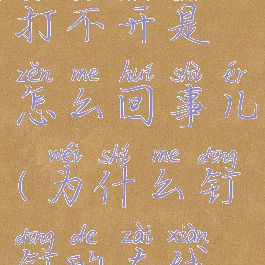 打不开是
zěn me huí shì ér
怎么回事儿
wéi shí me dīng
(为什么钉
dīng de zài xiàn
钉的在线